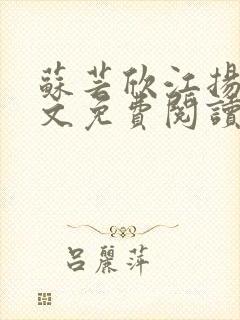 蘇芸欣江揚
文免費閱讀
呂麗萍